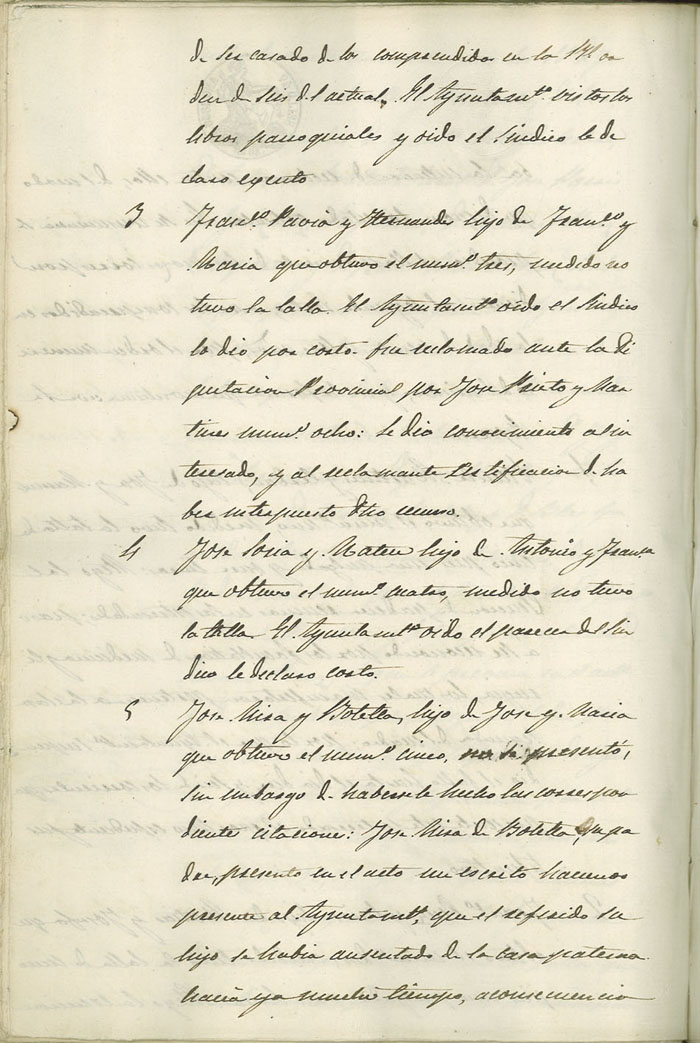 de ser casado de los comprendidos en la Rl or
den de seis del actual. El Ayuntamto. vistos los
libros parroquiales y oido el Sindico le de
claro exento
3 Franco. Pavia y Hernandez hijo de Franco. y
Maria que obtuvo el numo. tres, medido no
tuvo la talla. El Ayuntamto. oido el Sindico
lo dio por corto. fue reclamado ante la Di
putacion Provincial por Jose Prieto y Mar
tines numo. ocho: se dio conocimiento al in
teresado, y al reclamante certificacion de ha
ber interpuesto dho recurso.
4 Jose Soria y Mateu hijo de Antonio y Franca
que obtuvo el numo. cuatro, medido no tuvo
la talla. El Ayuntamto. oido el parecer del Sin
dico le declaro corto.
5 Jose Mira y Botella, hijo de Jose y Maria
que obtuvo el numo. cinco, no se presentó,
sin embargo de haberse le hecho las correspon
diente citacione: Jose Mira de Botella, su pa
dre, presento en el acto un escrito haciendo
presente al Ayuntamto, que el referido su
hijo se habia ausentado de la casa paterna
hacia ya mucho tiempo, a consecuencia